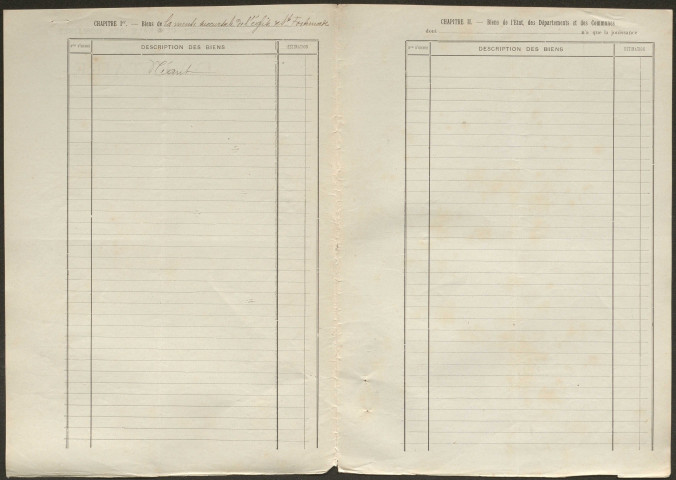 CHAPITRE Ier. — Biens de la mense succursale de l'église de St
Nos d'ordre DESCRIPTION DES BIENS ESTIMATION
Néant
CHAPITRE II. — Biens de l'État, des Départements et des Communes
dont n'a que la jouissance
Nos d'ordre DESCRIPTION DES BIENS ESTIMATION